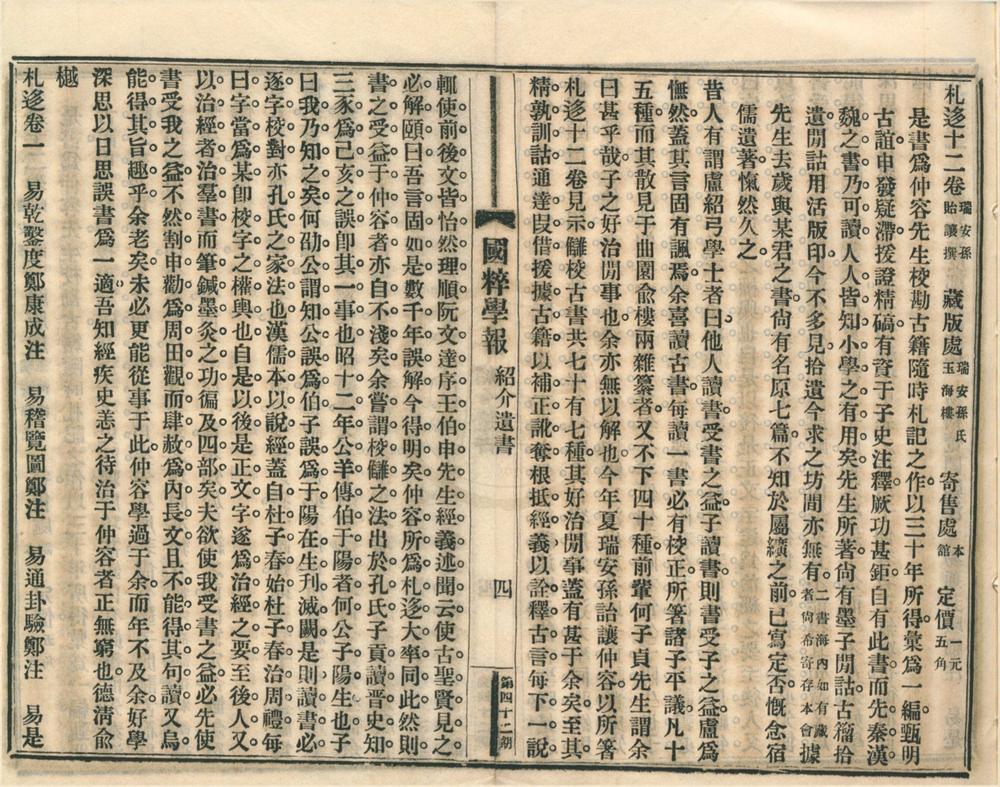 札迻十二卷 瑞安孫詒讓撰 藏版處 瑞安孫氏玉海樓 寄售處 本館 定價 一元五角
是書爲仲容先生校勘古籍隨時札記之作以三十年所得彙爲一編甄明
古誼申發疑滯援證精碻有資于子史注釋厥功甚鉅自有此書而先秦漢
魏之書乃可讀人人皆知小學之有用矣先生所著尙有墨子閒詁古籀拾
遺閒詁用活版印今不多見拾遺今求之坊間亦無有 二書海內如有藏者尙希寄存本會 據
先生去歲與某君之書尙有名原七篇不知於屬纊之前已寫定否慨念宿
儒遺著愾然久之
昔人有謂盧紹弓學士者曰他人讀書受書之益子讀書則書受子之益盧爲
憮然蓋其言固有諷焉余喜讀古書每讀一書必有校正所箸諸子平議凡十
五種而其散見于曲園俞樓兩雜纂者又不下四十種前輩何子貞先生謂余
曰甚乎哉子之好治閒事也余亦無以解也今年夏瑞安孫詒讓仲容以所箸
札迻十二卷見示讎校古書共七十有七種其好治閒事蓋有甚于余矣至其
精孰訓詁通達叚借援據古籍以補正訛奪根抵經義以詮釋古言每下一說
國粹學報 紹介遺書 四 第四十二期
輒使前後文皆怡然理順阮文達序王伯申先生經義述聞云使古聖賢見之
必解頤曰吾言固如是數千年誤解今得明矣仲容所爲札迻大率同此然則
書之受益于仲容者亦自不淺矣余嘗謂校讎之法出於孔氏子貢讀晉史知
三豕爲己亥之誤卽其一事也昭十二年公羊傳伯于陽者何公子陽生也子
曰我乃知之矣何劭公謂知公誤爲伯子誤爲于陽在生刊滅闕是則讀書必
逐字校對亦孔氏之家法也漢儒本以說經蓋自杜子春始杜子春治周禮每
曰字當爲某卽校字之權輿也自是以後是正文字遂爲治經之要至後人又
以治經者治羣書而筆鍼墨灸之功徧及四部矣夫欲使我受書之益必先使
書受我之益不然割申勸爲周田觀而肆赦爲內長文且不能得其句讀又烏
能得其旨趣乎余老矣未必更能從事于此仲容學過于余而年不及余好學
深思以日思誤書爲一適吾知經疾史恙之待治于仲容者正無窮也德清俞
樾
札迻卷一 易乾鑿度鄭康成注 易稽覽圖鄭注 易通卦驗鄭注 易是